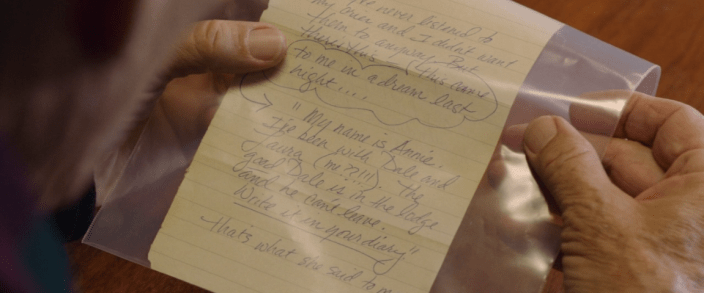 never
my and I didn't want
to anyway. But
this (This came
to me in a dream last
night....
"My name is Annie.
I've been with Dale and
Laura (me??!!!). The
good Dale is in the lodge
and he can't leave.
Write it in your diary"
That's what she said to